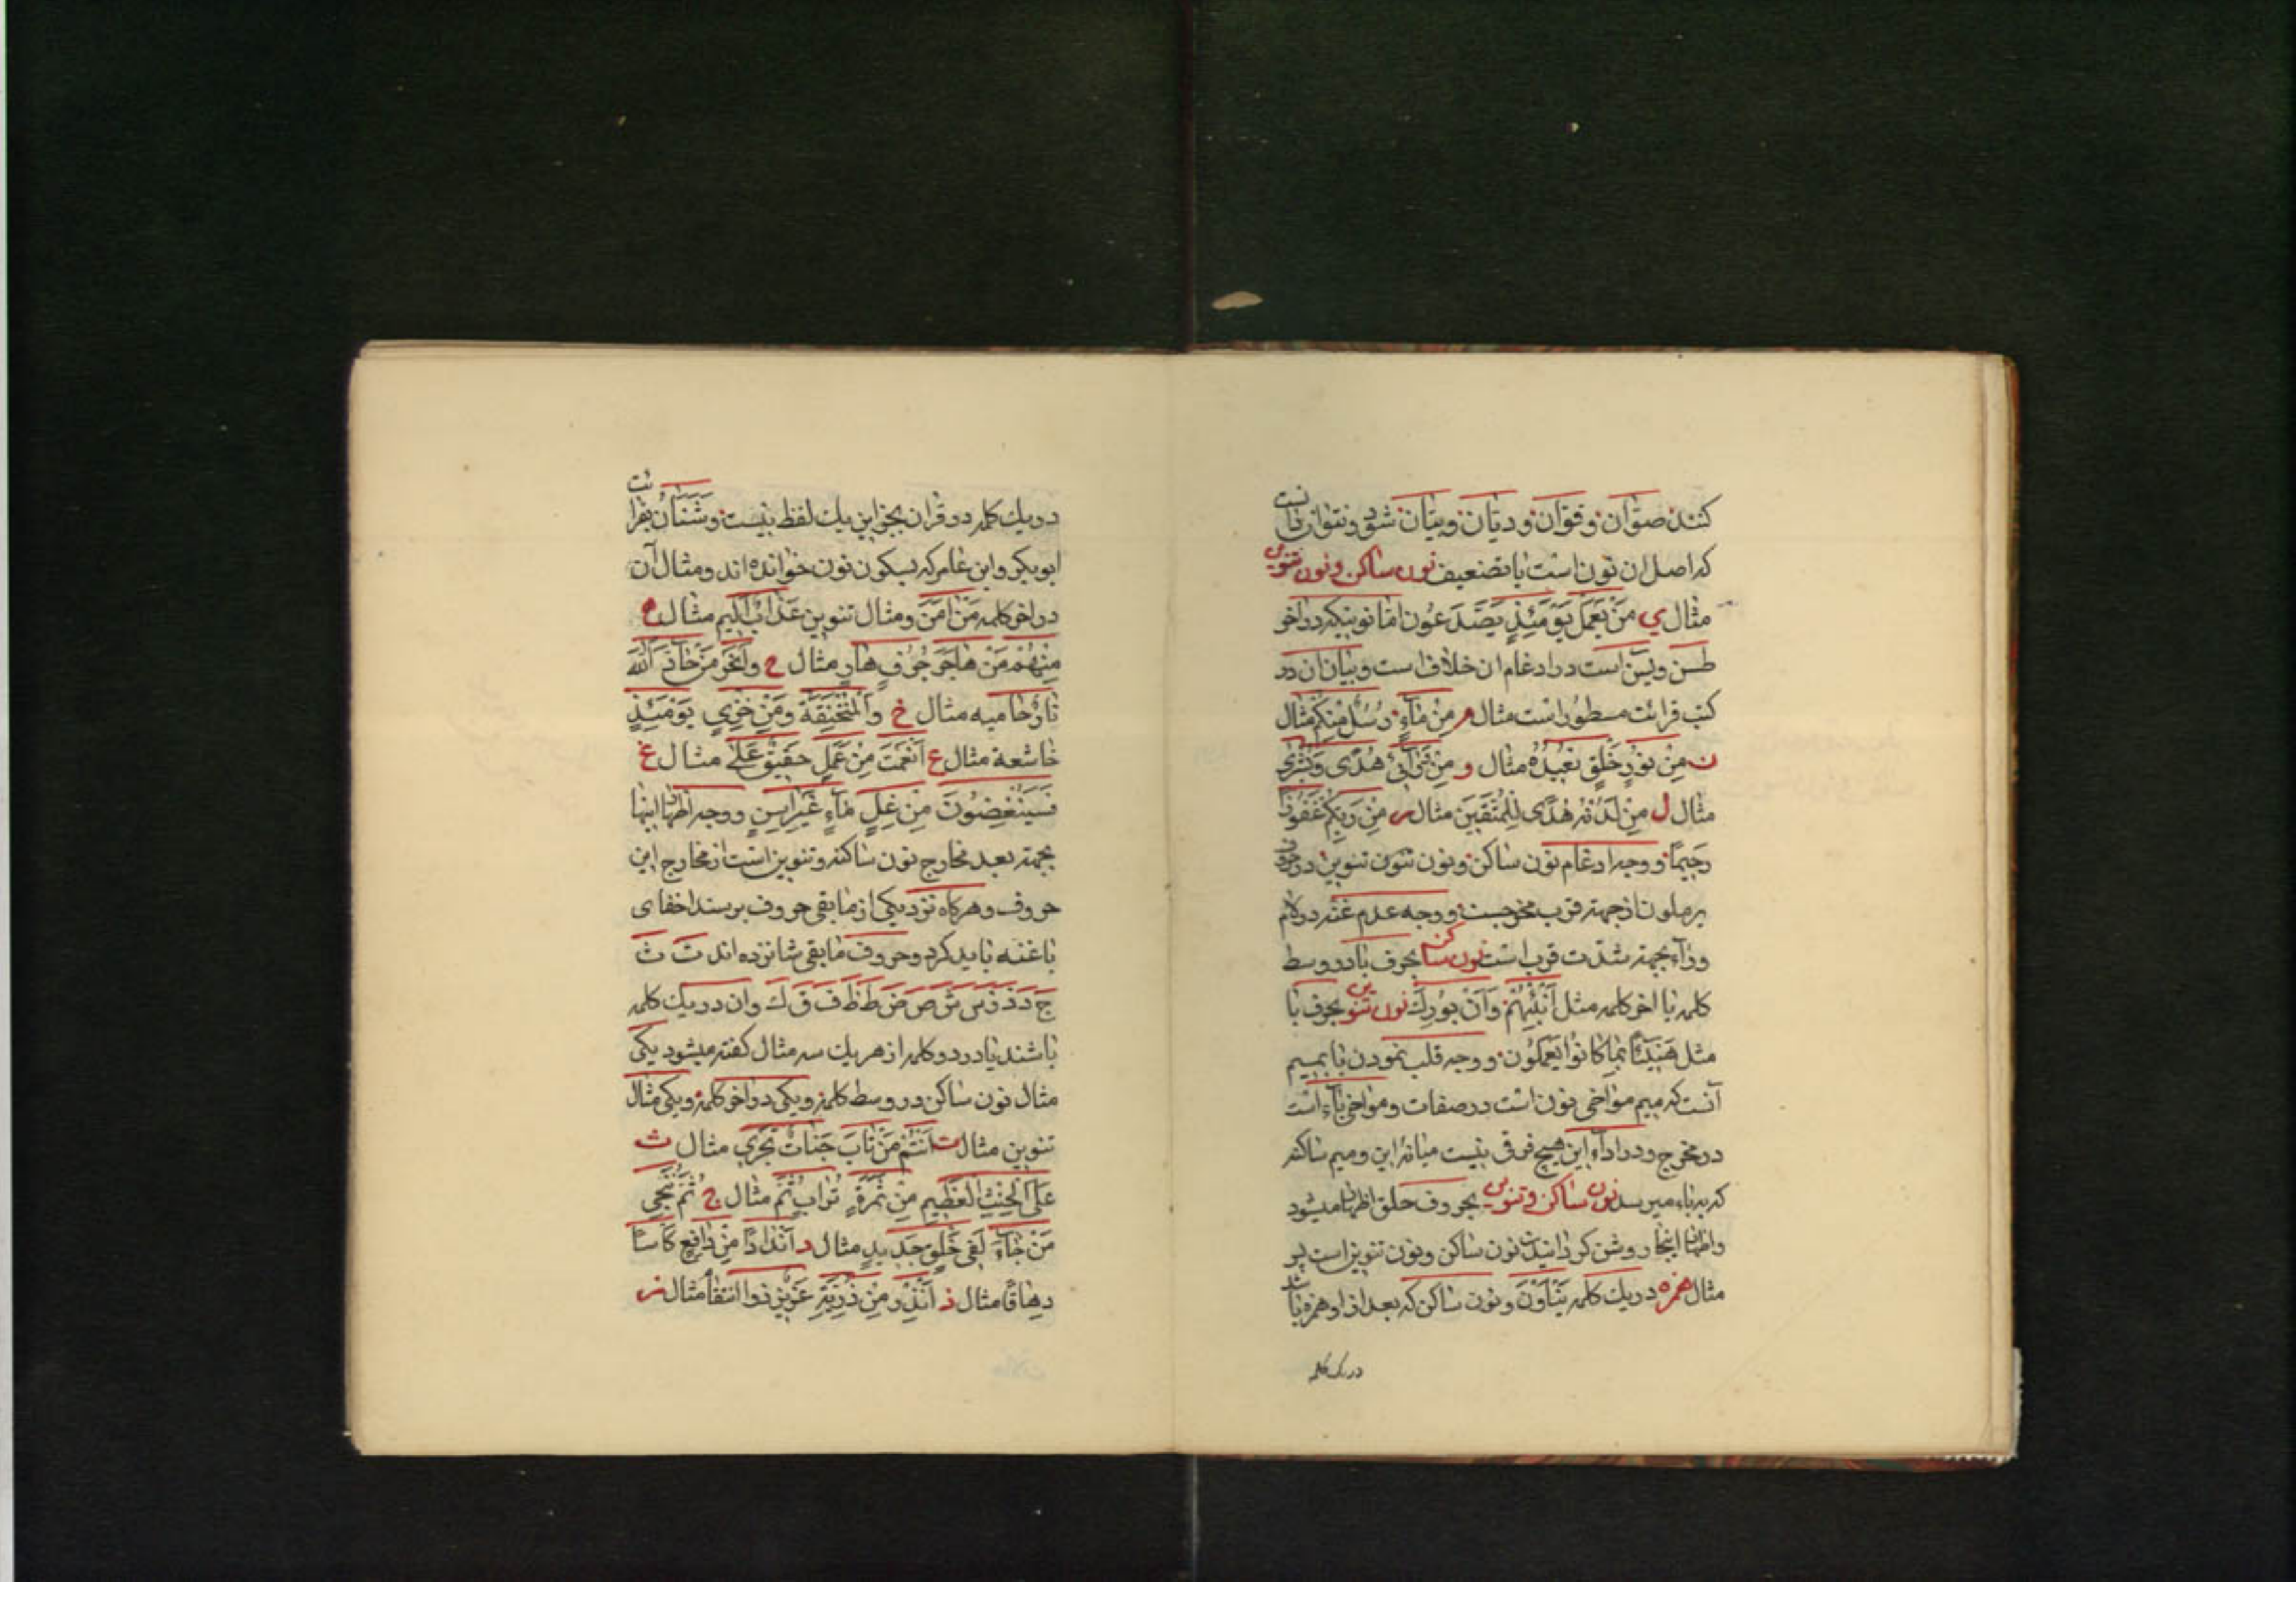 کنند صوّان و قوّان و دیّان و بیّان شود و نتوان دانست
که اصل ان نون است یا تضعیف نون ساکن و نون تنوین
مثال ي مَنْ یَعْمَلْ یَوْمَئِذٍ یَصَّدَّعُونَ اما نونیکه در اخر
طسن و یسن است در ادغام ان خلاف است و بیان ان در
کتب قرائت مسطور است مثال م مِنْ مٰآءٍ رُسُلٌ مِنْکُمْ مثال
ن مِنْ نُورٍ خَلْقٍ نُعِیدُهُ مثال و مِنْ وَرٰآئِ هُدًی وَبُشْرٰی
مثال ل مِنْ لَدُنْهُ هُدًی لِلْمُتَّقِینَ مثال ر مِنْ رَبِّکُمْ غَفُورًا
رَحِیمًا و وجه ادغام نون ساکن و نون تنوین تنوین در حروف
یرملون از جهة قرب مخرجست و وجه عدم غنه در لام
و رآء بجهة شدّت قرب است نون ساکن بحرف با در وسط
کلمه یا اخر کلمه مثل أَنْبِئْهُمْ وَأَنْ بُورِكَ نون تنوین بحرف با
مثل هَنِیئًا بِمٰا کٰانُوا یَعْمَلُونَ و وجه قلب نمودن با بمیم
آنست که میم مواخی نون است در صفات و مواخی بآء است
در مخرج و در ادآء این هیچ فرق نیست میانهٔ این و میم ساکنه
که به باء میرسد نون ساکن و تنوین بحروف حلق اظهار میشود
و اظهار اینجا روشن کردانیدن نون ساکن و نون تنوین است پس
مثال همزه در یك کلمه یَنْأَوْنَ و نون ساکن که بعد از او همزه باشد
در یک کلمه
در یك کلمه در قران بجز این یك لفظ نیست و شَنَئٰانُ بقرائت
ابو بکر و ابن عامر که بسکون نون خوانده اند و مثال آن
در اخر کلمه مَنْ اٰمَنَ و مثال تنوین عَذٰابٌ أَلِیم مثال ه
مِنْهُمْ مَنْ هٰاجَرَ جُرُفٍ هٰارٍ مثال ح وَانْحَرْ مَنْ حٰآدَّ اللّٰهَ
نٰارٌ حٰامیه مثال خ وَالْمُنْخَنِقَة وَمِنْ خِزْيِ یَوْمَئِذٍ
خٰاشعة مثال ع أَنْعَمْتَ مِنْ عَمَلٍ حَقِیقٌ عَلٰی مثال غ
فَسَیُنْغِضُونَ مِنْ غِلٍّ مٰآءٍ غَیْرِ اٰسِنٍ و وجه اظهار اینها
بجهة بعد مخارج نون ساکنه و تنوین است از مخارج این
حروف و هرکاه نزد یکی از مابقی حروف برسند اخفای
با غنه باید کرد و حروف مابقی شانزده اند ت ث
ج د ذ ز س ش ص ض ط ظ ف ق ك و ان در یك کلمه
باشند یا در دو کلمه از هر یك سه مثال کفته میشود یکی
مثال نون ساکن در وسط کلمه و یکی در اخر کلمه و یکی مثال
تنوین مثال ت أَنْتُمْ مَنْ تٰابَ جَنّٰاتٌ تَجْرِي مثال ث
عَلَی الْحِنْثِ الْعَظِیمِ مِنْ ثَمَرَةٍ تُرٰابٍ ثُمَّ مثال ج ثُمَّ نُنْجِي
مَنْ جٰآءَ لَفِي خَلْقٍ جَدِیدٍ مثال د أَنْدٰادًا مِنْ دٰافِعٍ کَأْسًا
دِهٰاقًا مثال ذ أَنْذِرْ مِنْ ذُرِّیَّةِ عَزِیزٌ ذو انتقام مثال ز